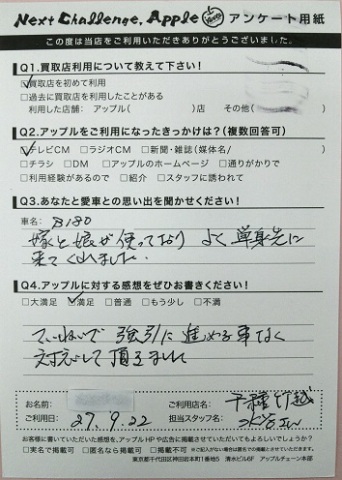 Next Challenge, Apple アンケート用紙
この度は当店をご利用いただきありがとうございました。
Q1.買取店利用について教えて下さい!
☑買取店を初めて利用
□過去に買取店を利用したことがある
利用した店舗: アップル( )店 その他( )
Q2.アップルをご利用になったきっかけは?(複数回答可)
☑テレビCM □ラジオCM □新聞・雑誌(媒体名/ )
□チラシ □DM □アップルのホームページ □通りがかりで
□利用経験があるので □紹介 □スタッフに誘われて
Q3.あなたと愛車との思い出を聞かせください!
車名: B180
嫁と娘が使っており よく単身先に
来てくれました。
Q4.アップルに対する感想をぜひお書きください!
□大満足 ☑満足 □普通 □もう少し □不満
ていねいで 強引に進める事なく
対応して頂きました
お名前: ご利用店名: 千種竹越
ご利用日: 27.9.22 担当スタッフ名: 水谷さん
お客様に書いていただいた感想を、アップルHPや広告に掲載させていただいてもよろしいでしょうか?
□実名で掲載可 □匿名なら掲載可 □掲載不可
東京都千代田区神田岩本町1番地5 清水ビル6F アップルチェーン本部